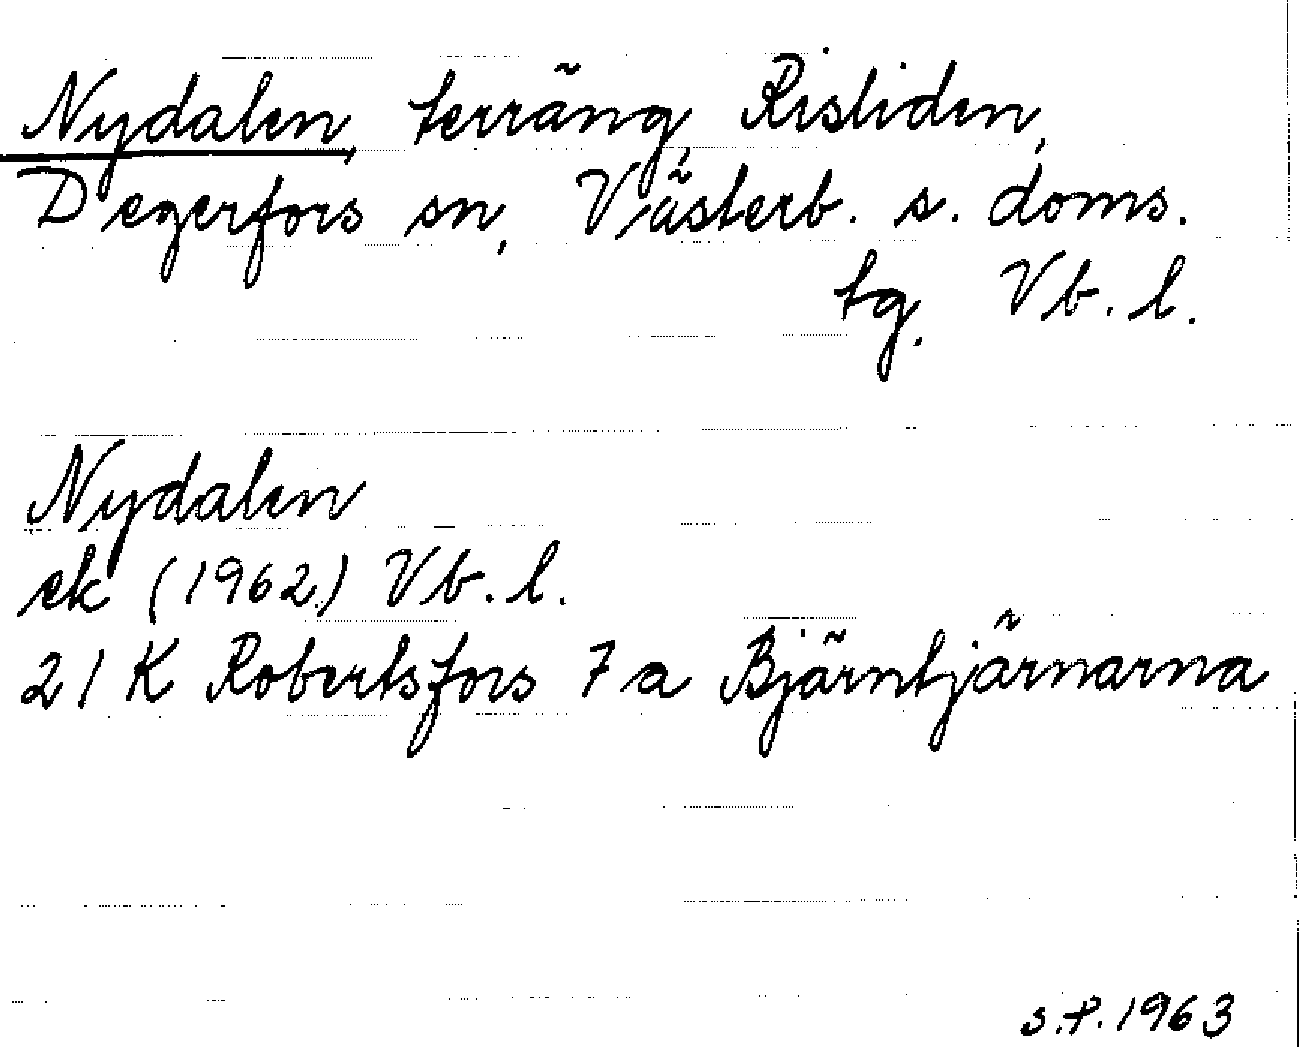 Nydalen, terräng, Risliden,
Degerfors sn, Västerb. s. doms.
tg. Vb. l.
Nydalen
ek (1962) Vb. l.
21 K Robertsfors 7 a Björntjärnarna
s.P. 1963